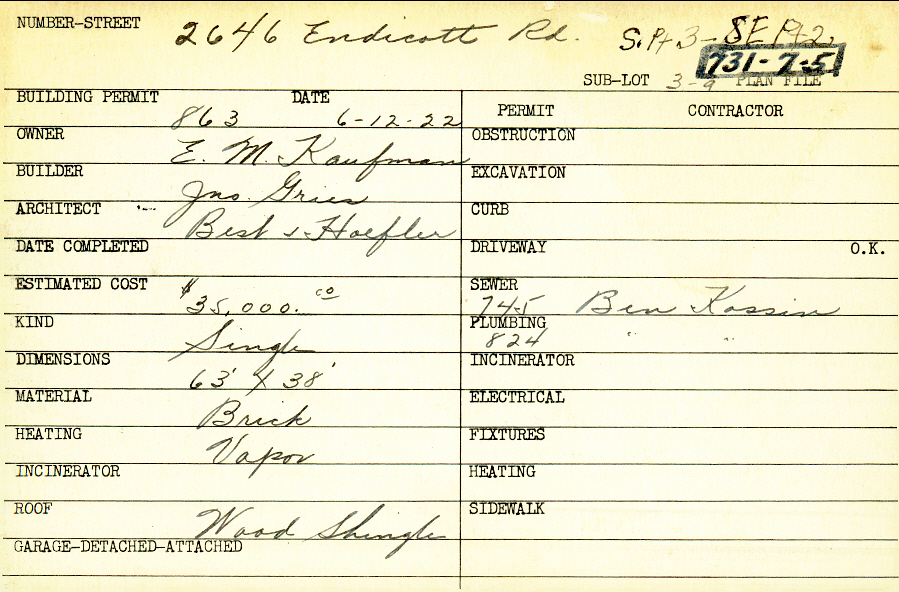 NUMBER-STREET 2646 Endicott Rd. S.Pt 3- SE Pt 2.
731-7-5
SUB-LOT 3-9 PLAN FILE
BUILDING PERMIT 863 DATE 6-12-22
PERMIT CONTRACTOR
OWNER E. M. Kaufman
OBSTRUCTION
BUILDER Jno. Gries
EXCAVATION
ARCHITECT Best & Hoefler
CURB
DATE COMPLETED
DRIVEWAY O.K.
ESTIMATED COST $35,000.00
SEWER 745 Ben Kossin
KIND Single
PLUMBING 824 " "
DIMENSIONS 63' X 38'
INCINERATOR
MATERIAL Brick
ELECTRICAL
HEATING Vapor
FIXTURES
INCINERATOR
HEATING
ROOF Wood Shingle
SIDEWALK
GARAGE-DETACHED-ATTACHED